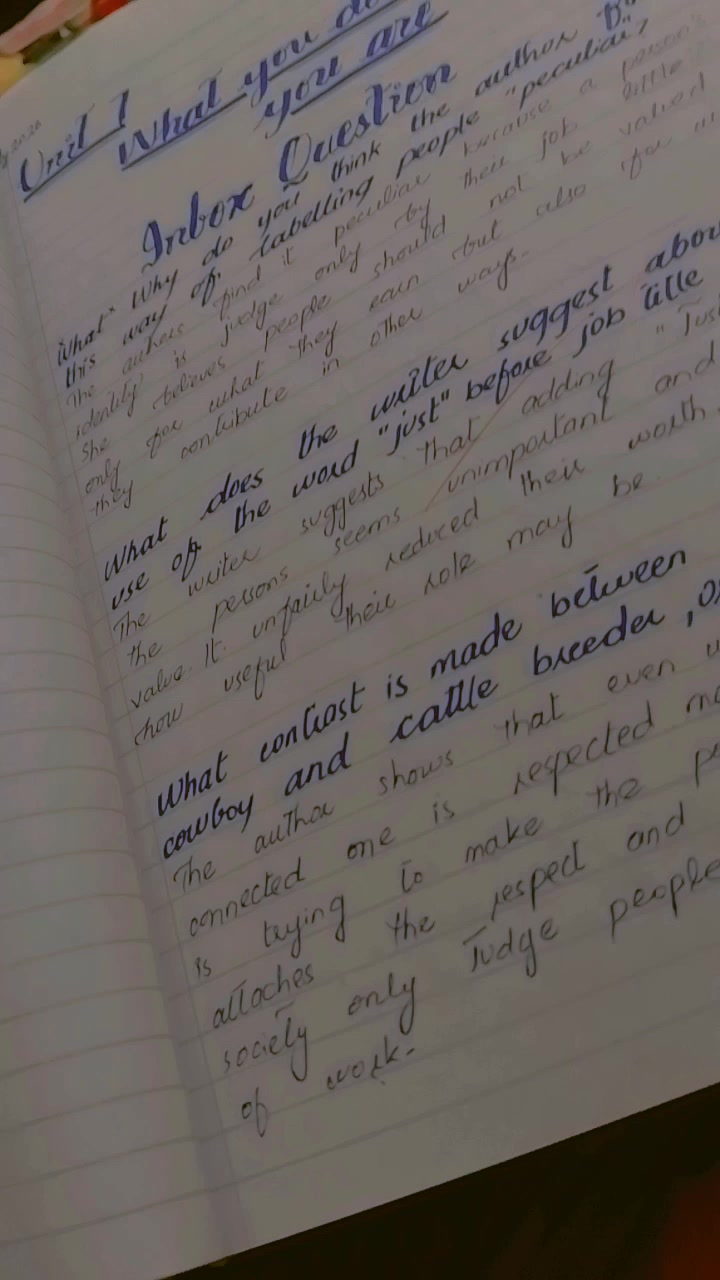 2020
Unit 1
What you do
you are
Inbox Question
What Why do you think the author
this way of labelling people "peculiar"?
The authers find it peculiar because a person's
identity is judge only by their job little
She believes people should not be valued
only for what they earn but also for
they contribute in other ways.
What does the writer suggest about
use of the word "just" before job title
The writer suggests that adding "Just
the persons seems unimportant and
value. It unfairly reduced their worth.
how useful their role may be.
What contrast is made between
cowboy and cattle breeder,
The author shows that even
connected one is respected
is trying to make the
attaches the respect and
society only Judge people
of work.